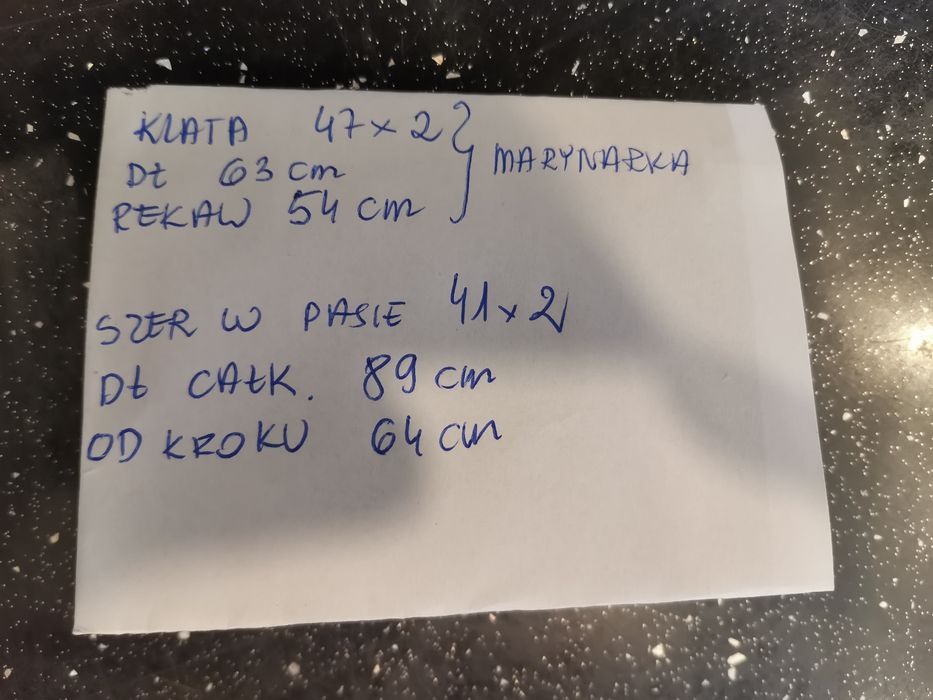 KLATA 47 x 2
DŁ 63 cm
RĘKAW 54 cm
MARYNARKA
SZER W PASIE 41 x 2
DŁ CAŁK. 89 cm
OD KROKU 64 cm